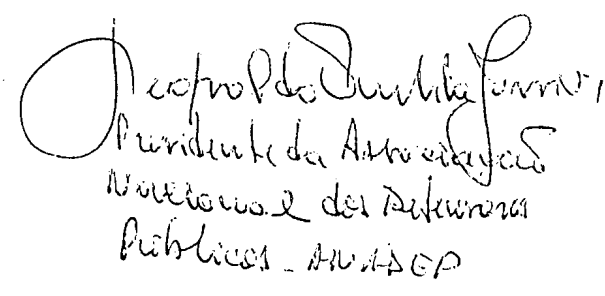 Leopoldo Portela Júnior,
Presidente da Associação
Nacional dos Defensores
Públicos - ANADEP